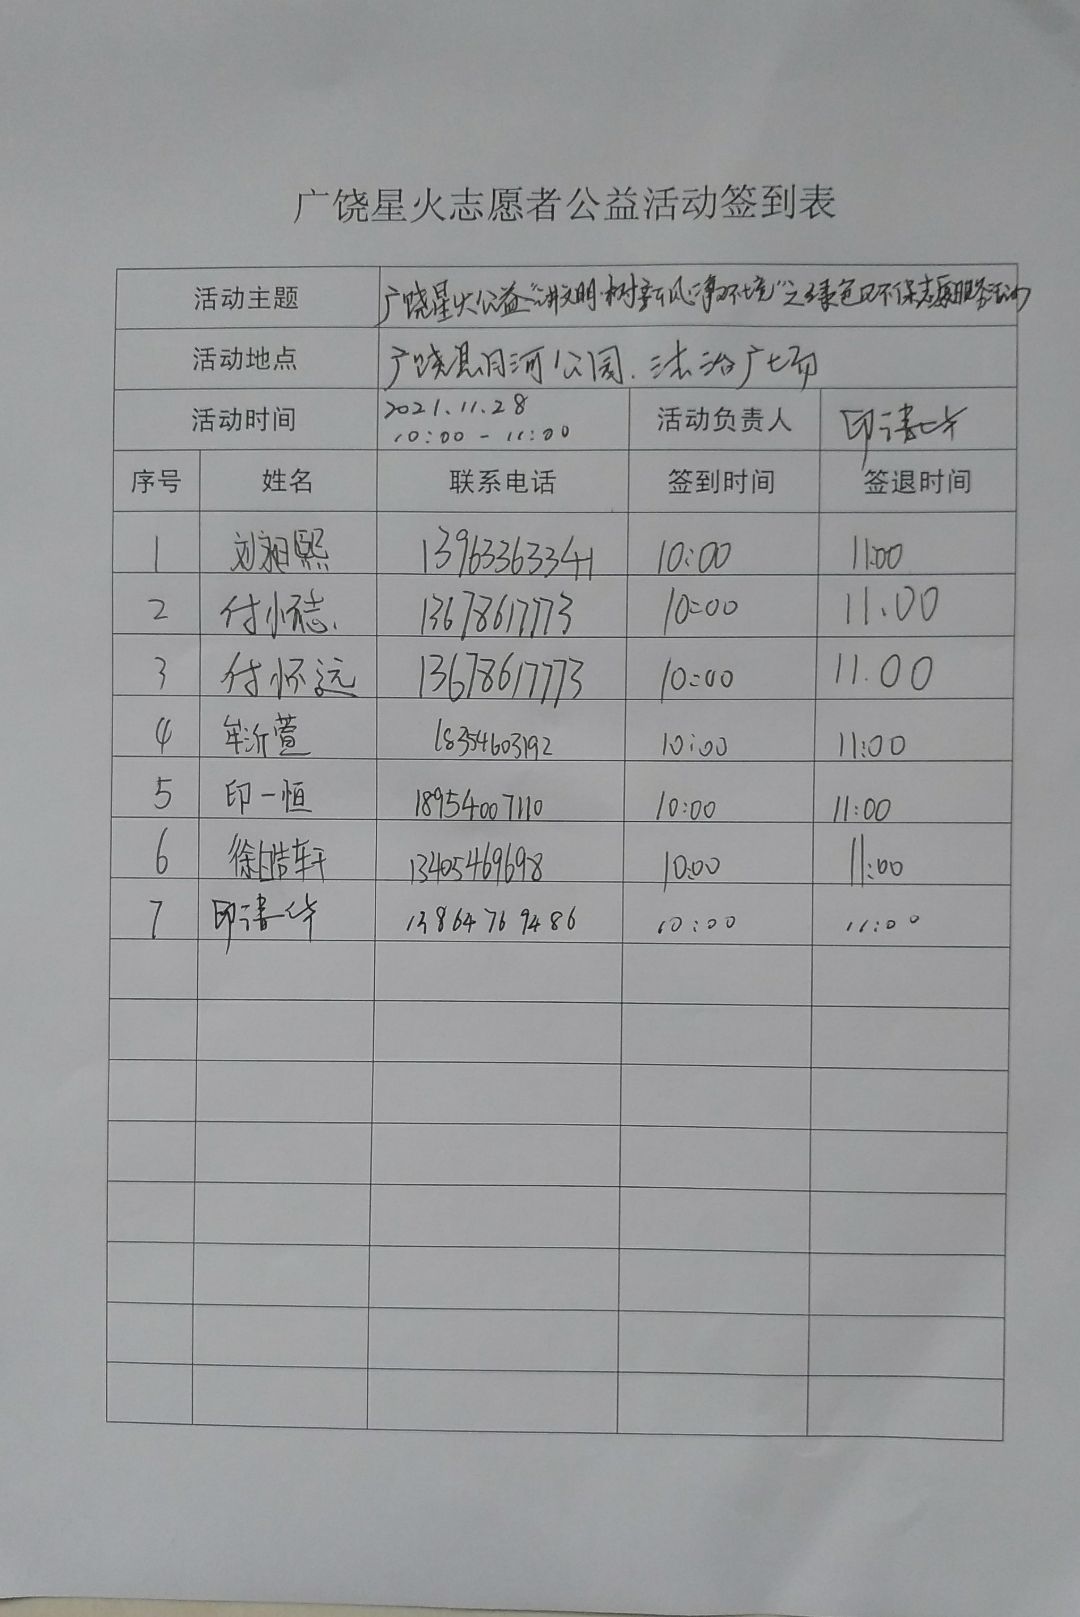 广饶星火志愿者公益活动签到表
活动主题 广饶星火公益“讲文明·树新风·净环境”之绿色环保志愿服务活动
活动地点 广饶县月河公园.法治广场
活动时间 2021.11.28 活动负责人 印清华
10:00-11:00
序号 姓名 联系电话 签到时间 签退时间
1 刘昶熙 13963363341 10:00 11:00
2 付怀志 13678617773 10:00 11.00
3 付怀远 13678617773 10:00 11.00
4 牟沂萱 18354603192 10:00 11:00
5 印一恒 18954007110 10:00 11:00
6 徐皓轩 13405469698 10:00 11:00
7 印清华 13864769486 10:00 11:00